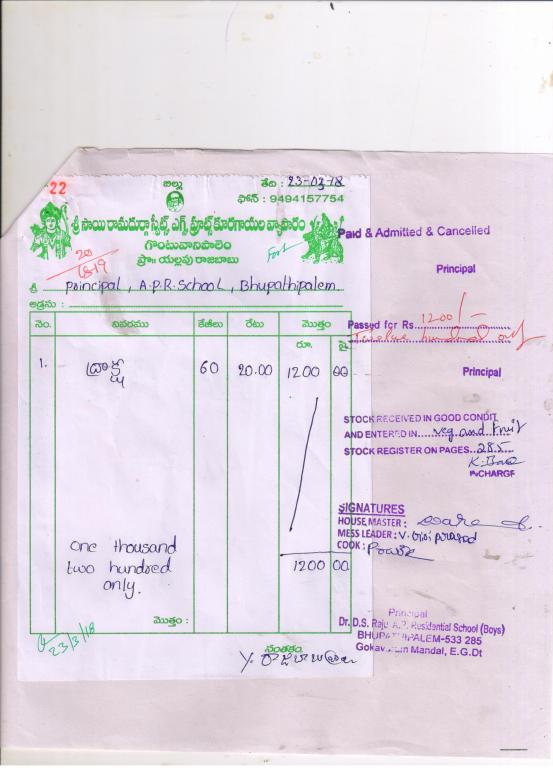 22
బిల్లు
తేది : 23-03-18
ఫోన్ : 9494157754
శ్రీ సాయి రామదుర్గా స్వీట్స్ ఎగ్స్ ఫ్రూట్స్ కూరగాయల వ్యాపారం
గొంటువానిపాలెం
ప్రొ॥ యల్లపు రాజబాబు
20
18-19
శ్రీ Principal, A.P.R. School, Bhupathipalem
అడ్రసు :
నెం. వివరము కేజీలు రేటు మొత్తం
రూ. పై
1. ద్రాక్ష 60 20.00 1200 00
one thousand
two hundred
only.
1200 00
మొత్తం :
23/3/18
సంతకం
Y. రాజబాబు
Paid & Admitted & Cancelled
Principal
Passed for Rs. 1200/-
Twelve hundred only
Principal
STOCK RECEIVED IN GOOD CONDIT
AND ENTERED IN veg and fruit
STOCK REGISTER ON PAGES 285
INCHARGE
SIGNATURES
HOUSE MASTER :
MESS LEADER : V.
COOK :
Principal
Dr. D.S. Raju A.P. Residential School (Boys)
BHUPATHIPALEM-533 285
Gokavaram Mandal, E.G.Dt